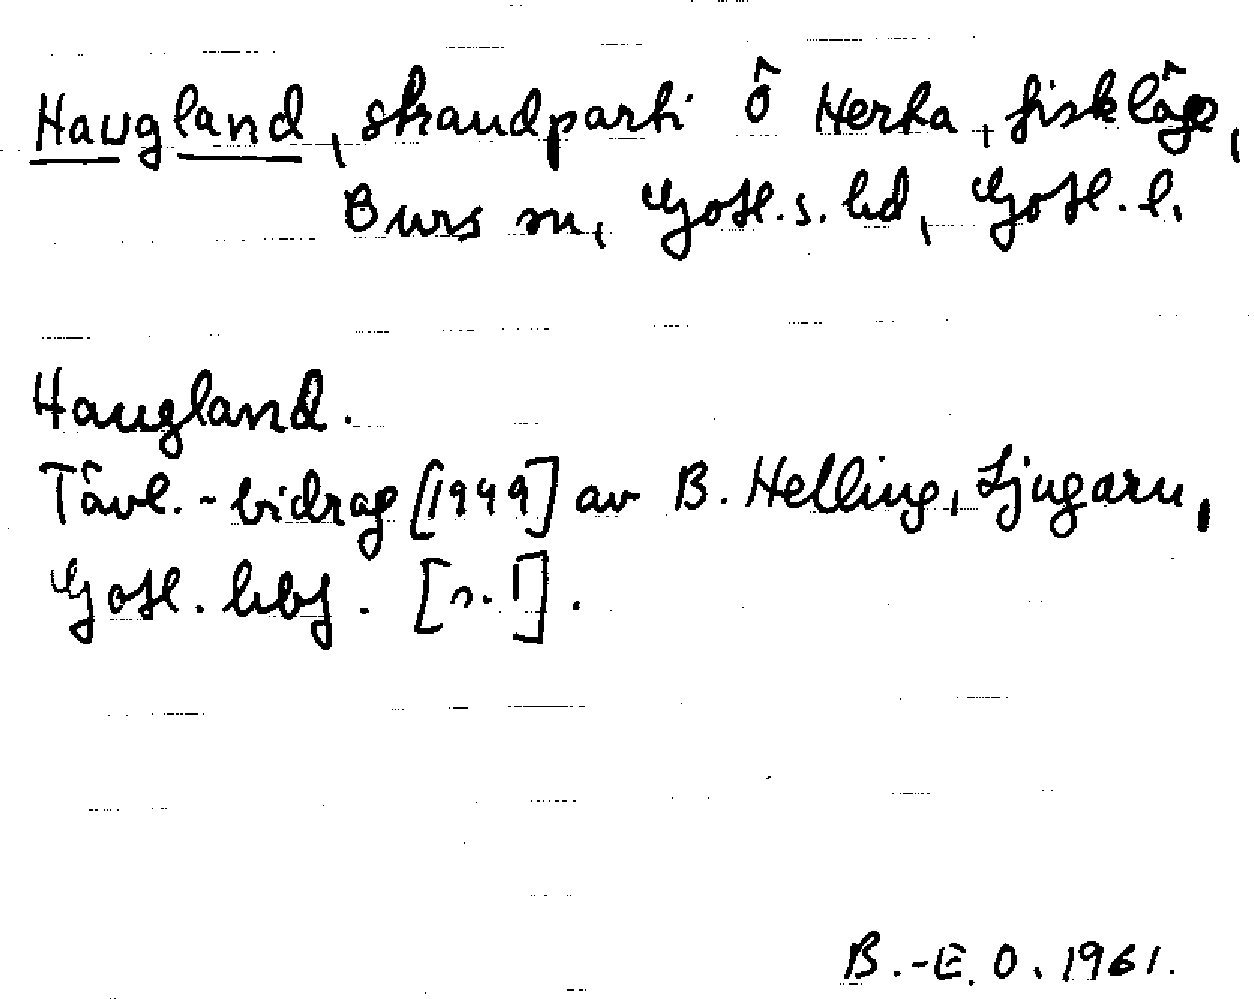 Haugland, strandparti ö Herta, fiskläge,
Burs sn, Gotl. s. hd, Gotl. l.
Haugland.
Tävl.-bidrag [1949] av B. Helling, Ljugarn,
Gotl. hbf. [s. 1].
B.-E. O. 1961.